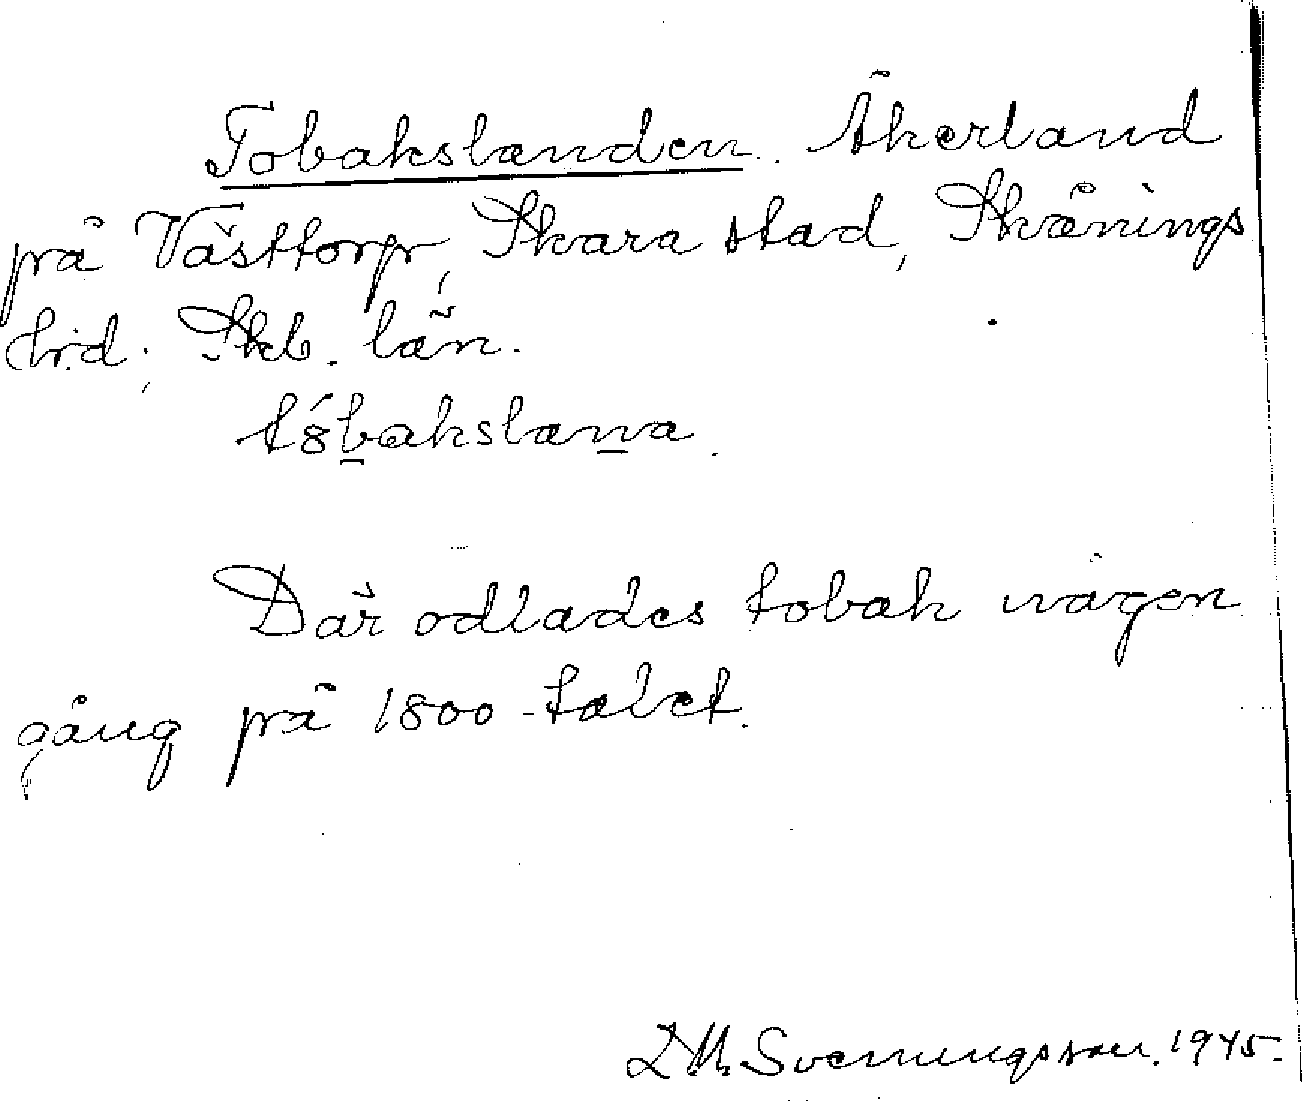 Tobakslanden. Åkerland
på Västtorp, Skara stad, Skånings
hd; Skb. län.
tóbakslana.
Där odlades tobak någon
gång på 1800-talet.
D.M. Svenungsson. 1945.